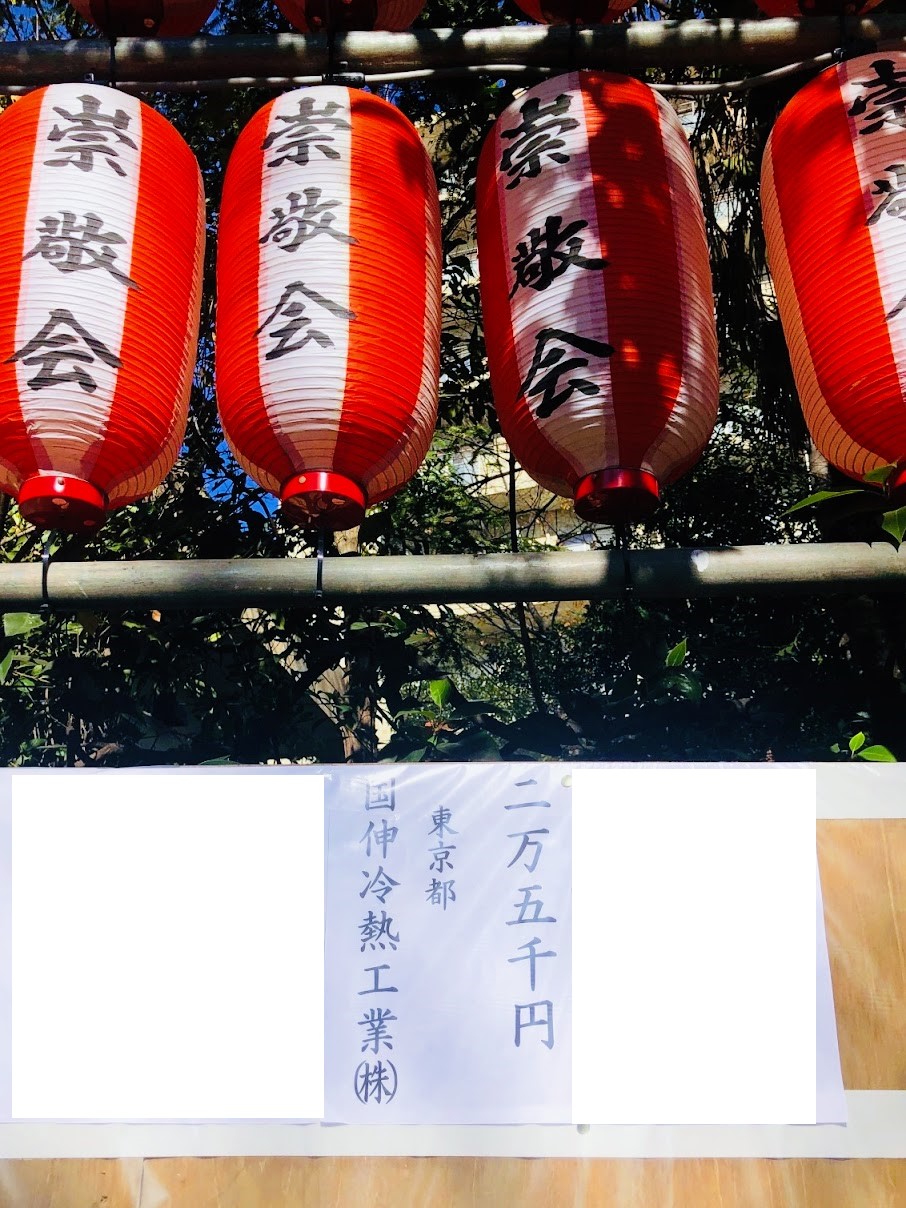 崇敬会
崇敬会
崇敬会
崇敬
二万五千円
東京都
国伸冷熱工業㈱